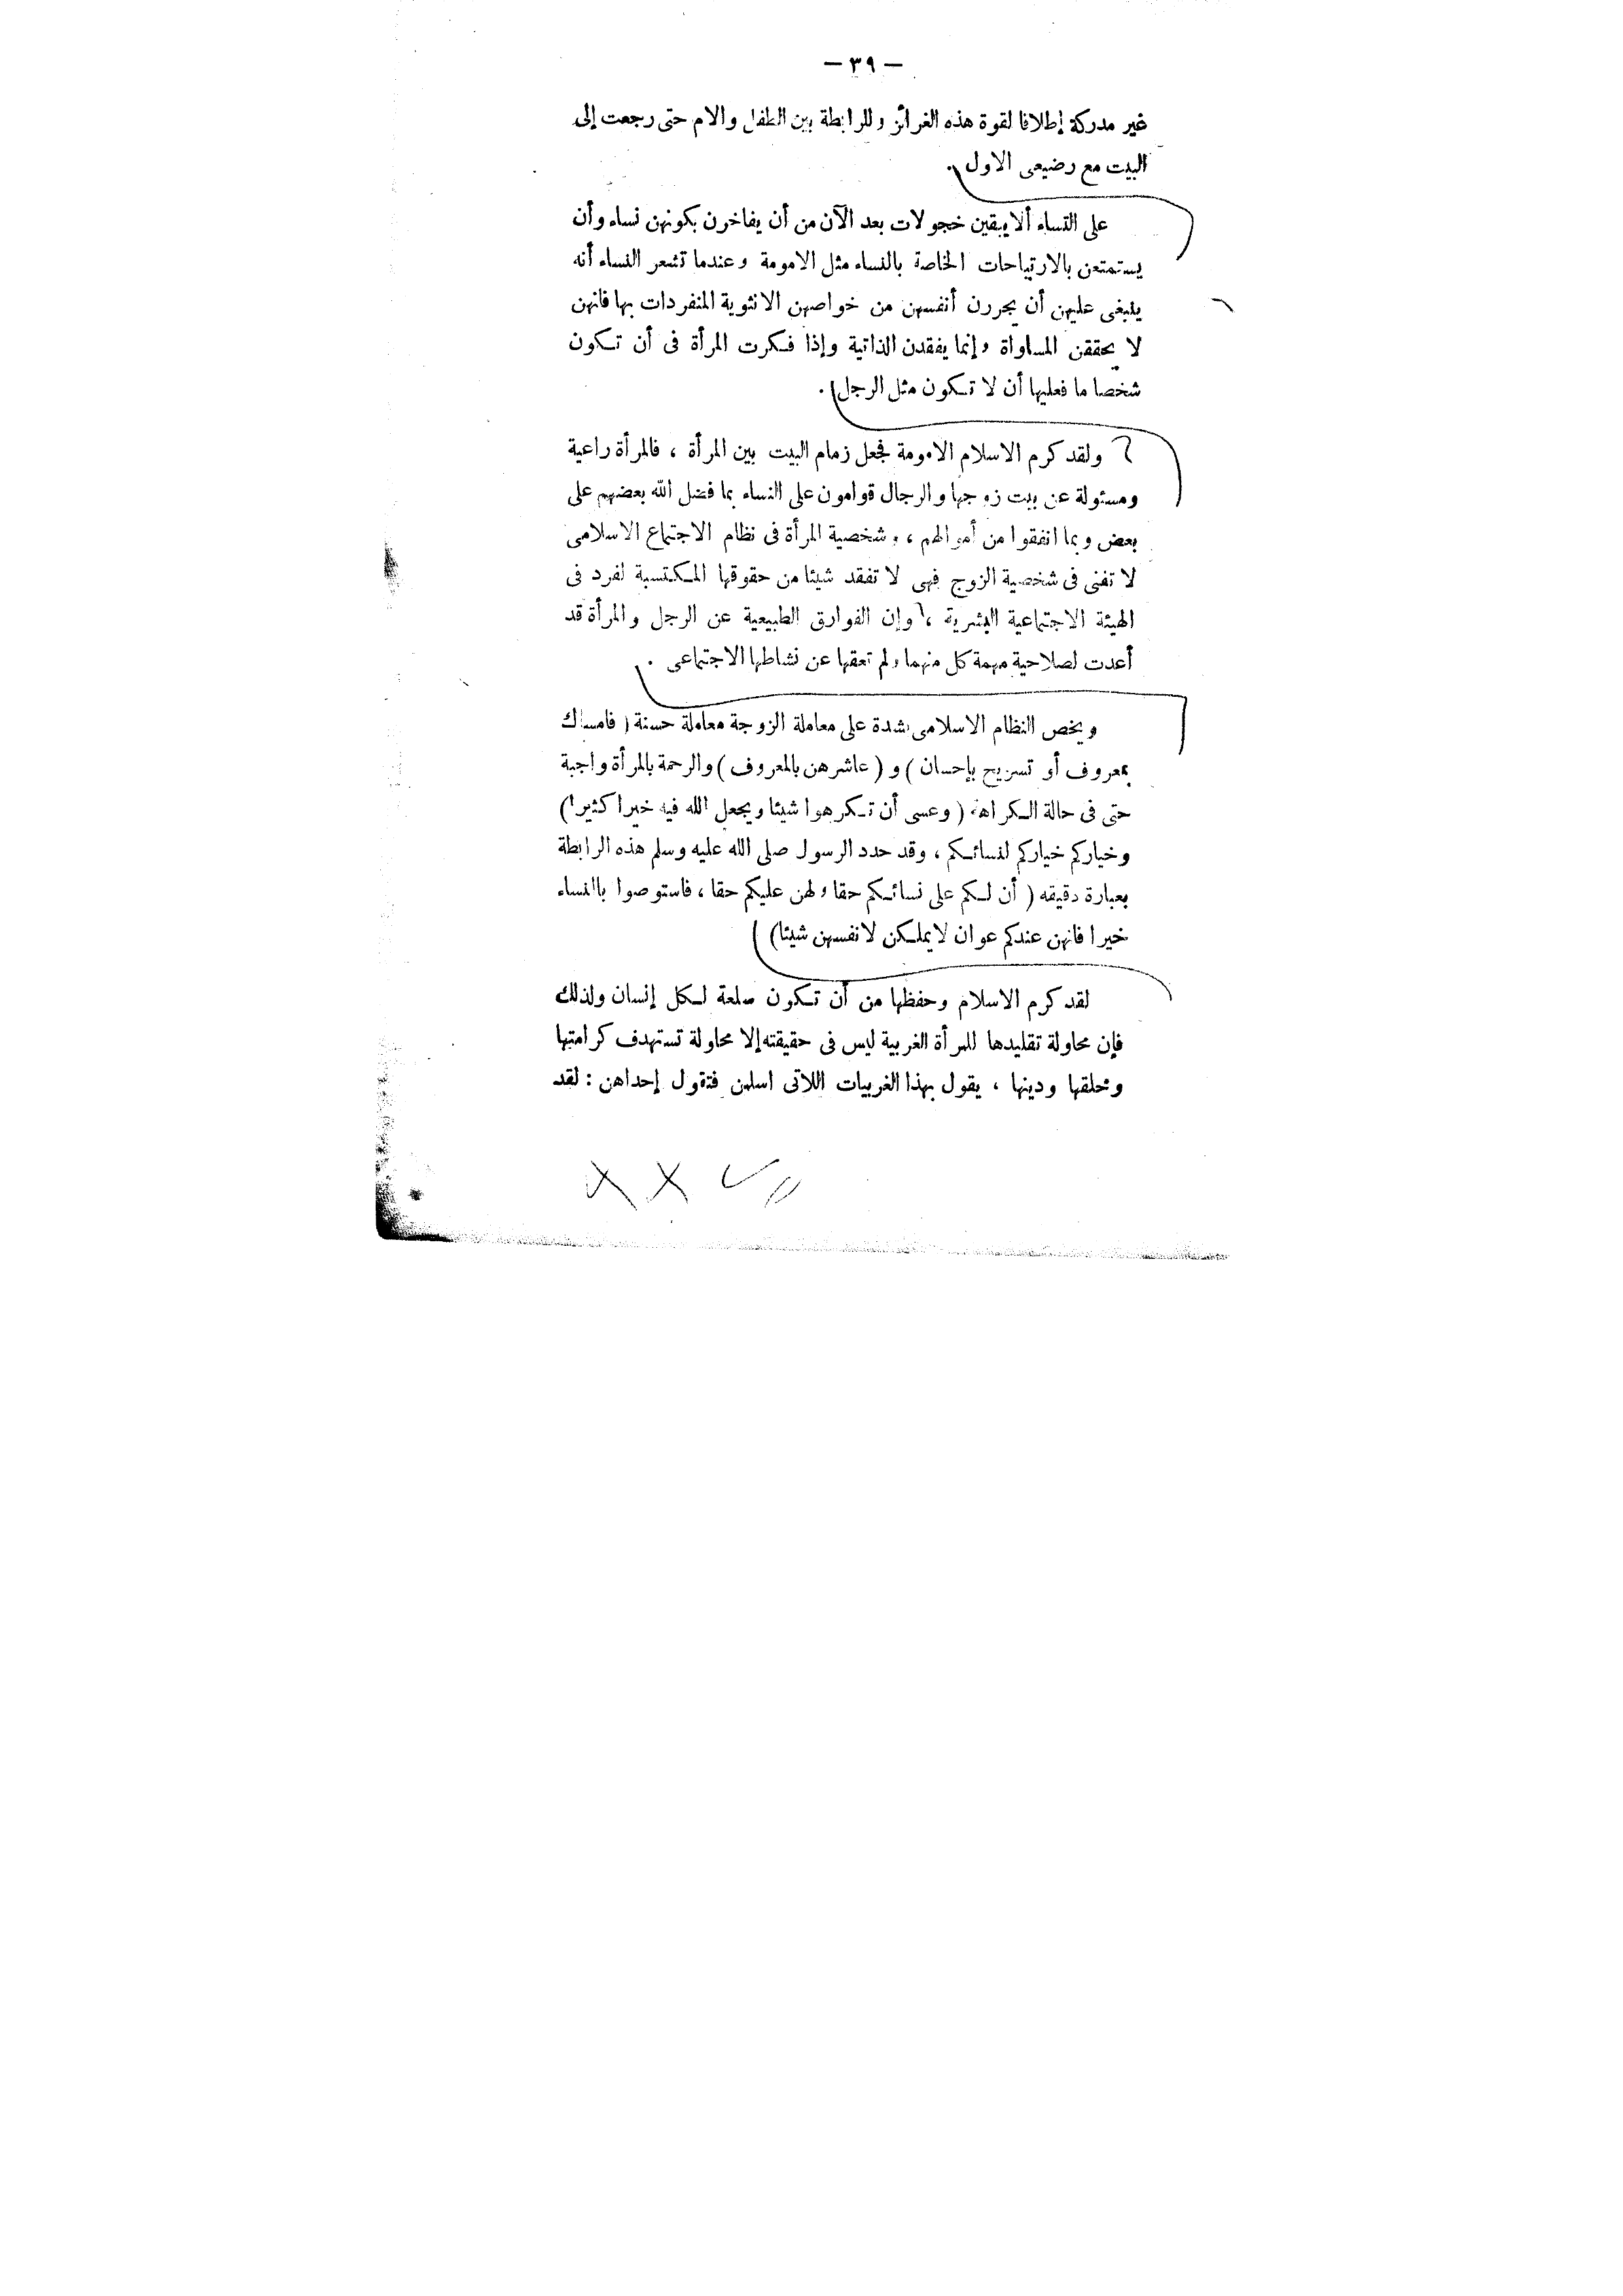 — ٣٩ —
غير مدركة إطلاقا لقوة هذه الغرائز وللرابطة بين الطفل والام حتى رجعت إلى
البيت مع رضيعى الاول .
على النساء ألا يبقين خجولات بعد الآن من أن يفاخرن بكونهن نساء وأن
يستمتعن بالارتياحات الخاصة بالنساء مثل الامومة وعندما تشعر النساء أنه
ينبغى عليهن أن يحررن أنفسهن من خواصهن الانثوية المنفردات بها فانهن
لا يحققن المساواة وإنما يفقدن الذاتية وإذا فكرت المرأة فى أن تكون
شخصا ما فعليها أن لا تكون مثل الرجل .
ولقد كرم الاسلام الامومة فجعل زمام البيت بين المرأة ، فالمرأة راعية
ومسئولة عن بيت زوجها والرجال قوامون على النساء بما فضل الله بعضهم على
بعض وبما انفقوا من أموالهم ، وشخصية المرأة فى نظام الاجتماع الاسلامى
لا تفنى فى شخصية الزوج فهى لا تفقد شيئا من حقوقها المكتسبة لفرد فى
الهيئة الاجتماعية البشرية ، وإن الفوارق الطبيعية عن الرجل والمرأة قد
أعدت لصلاحية مهمة كل منهما ولم تعقها عن نشاطها الاجتماعى .
ويخص النظام الاسلامى بشدة على معاملة الزوجة معاملة حسنة ( فامساك
بمعروف أو تسريح بإحسان ) و ( عاشرهن بالمعروف ) والرحمة بالمرأة واجبة
حتى فى حالة الكراهة ( وعسى أن تكرهوا شيئا ويجعل الله فيه خيرا كثيرا )
وخياركم خياركم لنسائكم ، وقد حدد الرسول صلى الله عليه وسلم هذه الرابطة
بعبارة دقيقه ( أن لكم على نسائكم حقا ولهن عليكم حقا ، فاستوصوا بالنساء
خيرا فانهن عندكم عوان لا يملكن لانفسهن شيئا )
لقد كرم الاسلام وحفظها من أن تكون سلعة لكل إنسان ولذلك
فإن محاولة تقليدها للمرأة الغربية ليس فى حقيقته إلا محاولة تستهدف كرامتها
وخلقها ودينها ، يقول بهذا الغربيات اللاتى اسلمن فتقول إحداهن : لقد